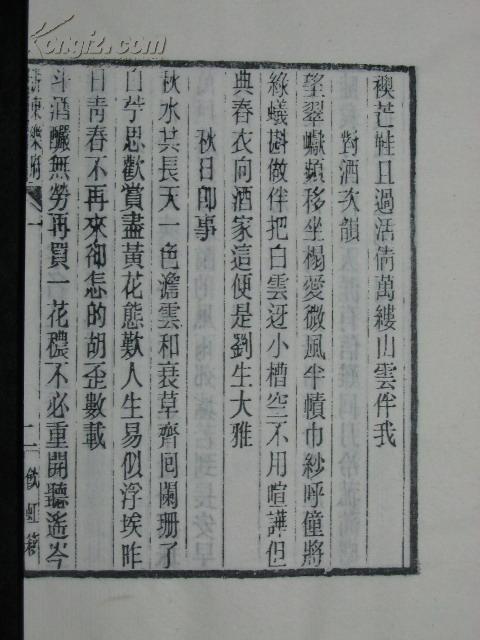 襖芒鞋且過活倩萬縷山雲伴我
對酒次韻
望翠巘頻移坐榻愛微風半幘巾紗呼僮將
綠蟻斟做伴把白雲迓小槽空不用喧譁但
典春衣向酒家這便是劉生大雅
秋日卽事
秋水共長天一色澹雲和衰草齊囘闌珊了
白苧思歡賞盡黃花態歎人生易似浮埃昨
日靑春不再來卻怎的胡歪數載
斗酒釃無勞再買一花穠不必重開聽遙岑
東樂府
一
二
飲虹簃
kongfz.com